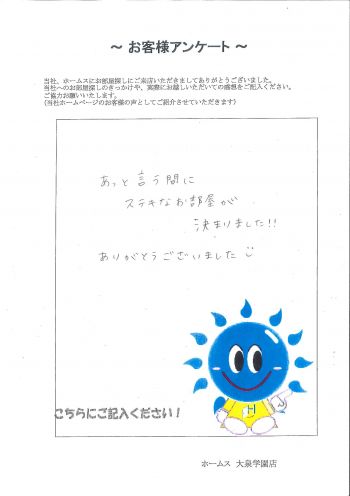 ～ お客様アンケート ～
当社、ホームスにお部屋探しにご来店いただきましてありがとうございました。
当社へのお部屋探しのきっかけや、実際にお越しいただいての感想をご記入ください。
ご協力お願いいたします。
(当社ホームページのお客様の声としてご紹介させていただきます)
あっと言う間に
ステキなお部屋が
決まりました!!
ありがとうございました
こちらにご記入ください！
H J
ホームス 大泉学園店